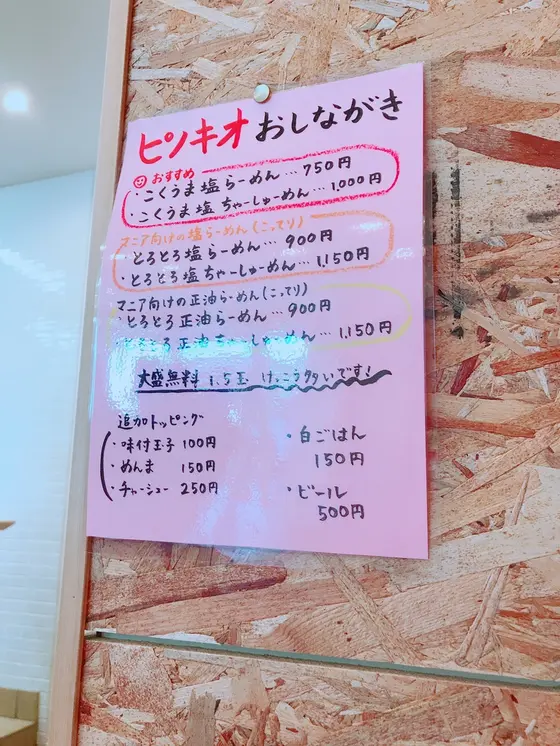 ピノキオ おしながき
おすすめ
・こくうま塩らーめん…750円
・こくうま塩ちゃーしゅーめん…1,000円
マニア向けの塩らーめん(こってり)
・とろとろ塩らーめん…900円
・とろとろ塩ちゃーしゅーめん…1,150円
マニア向けの正油らーめん(こってり)
・とろとろ正油らーめん…900円
・とろとろ正油ちゃーしゅーめん…1,150円
大盛無料 1.5玉 けっこう多いです!
追加トッピング
・味付玉子 100円
・めんま 150円
・チャーシュー 250円
・白ごはん
150円
・ビール
500円